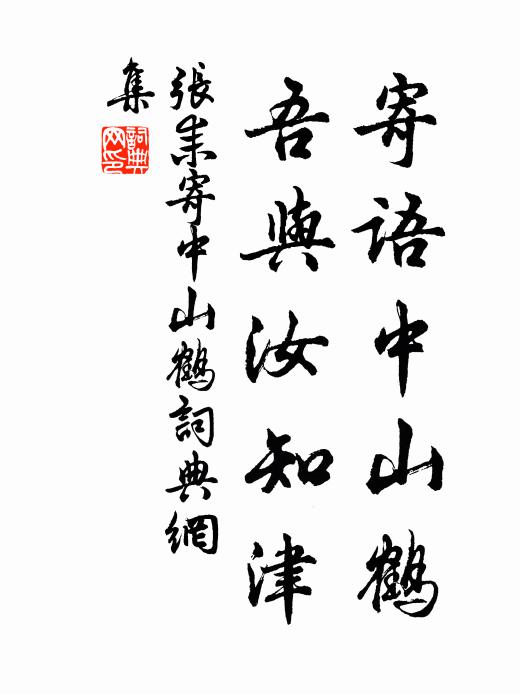 寄語中山鶴
吾與汝知津
張耒寄中山鶴詞典網
集
詞典网印